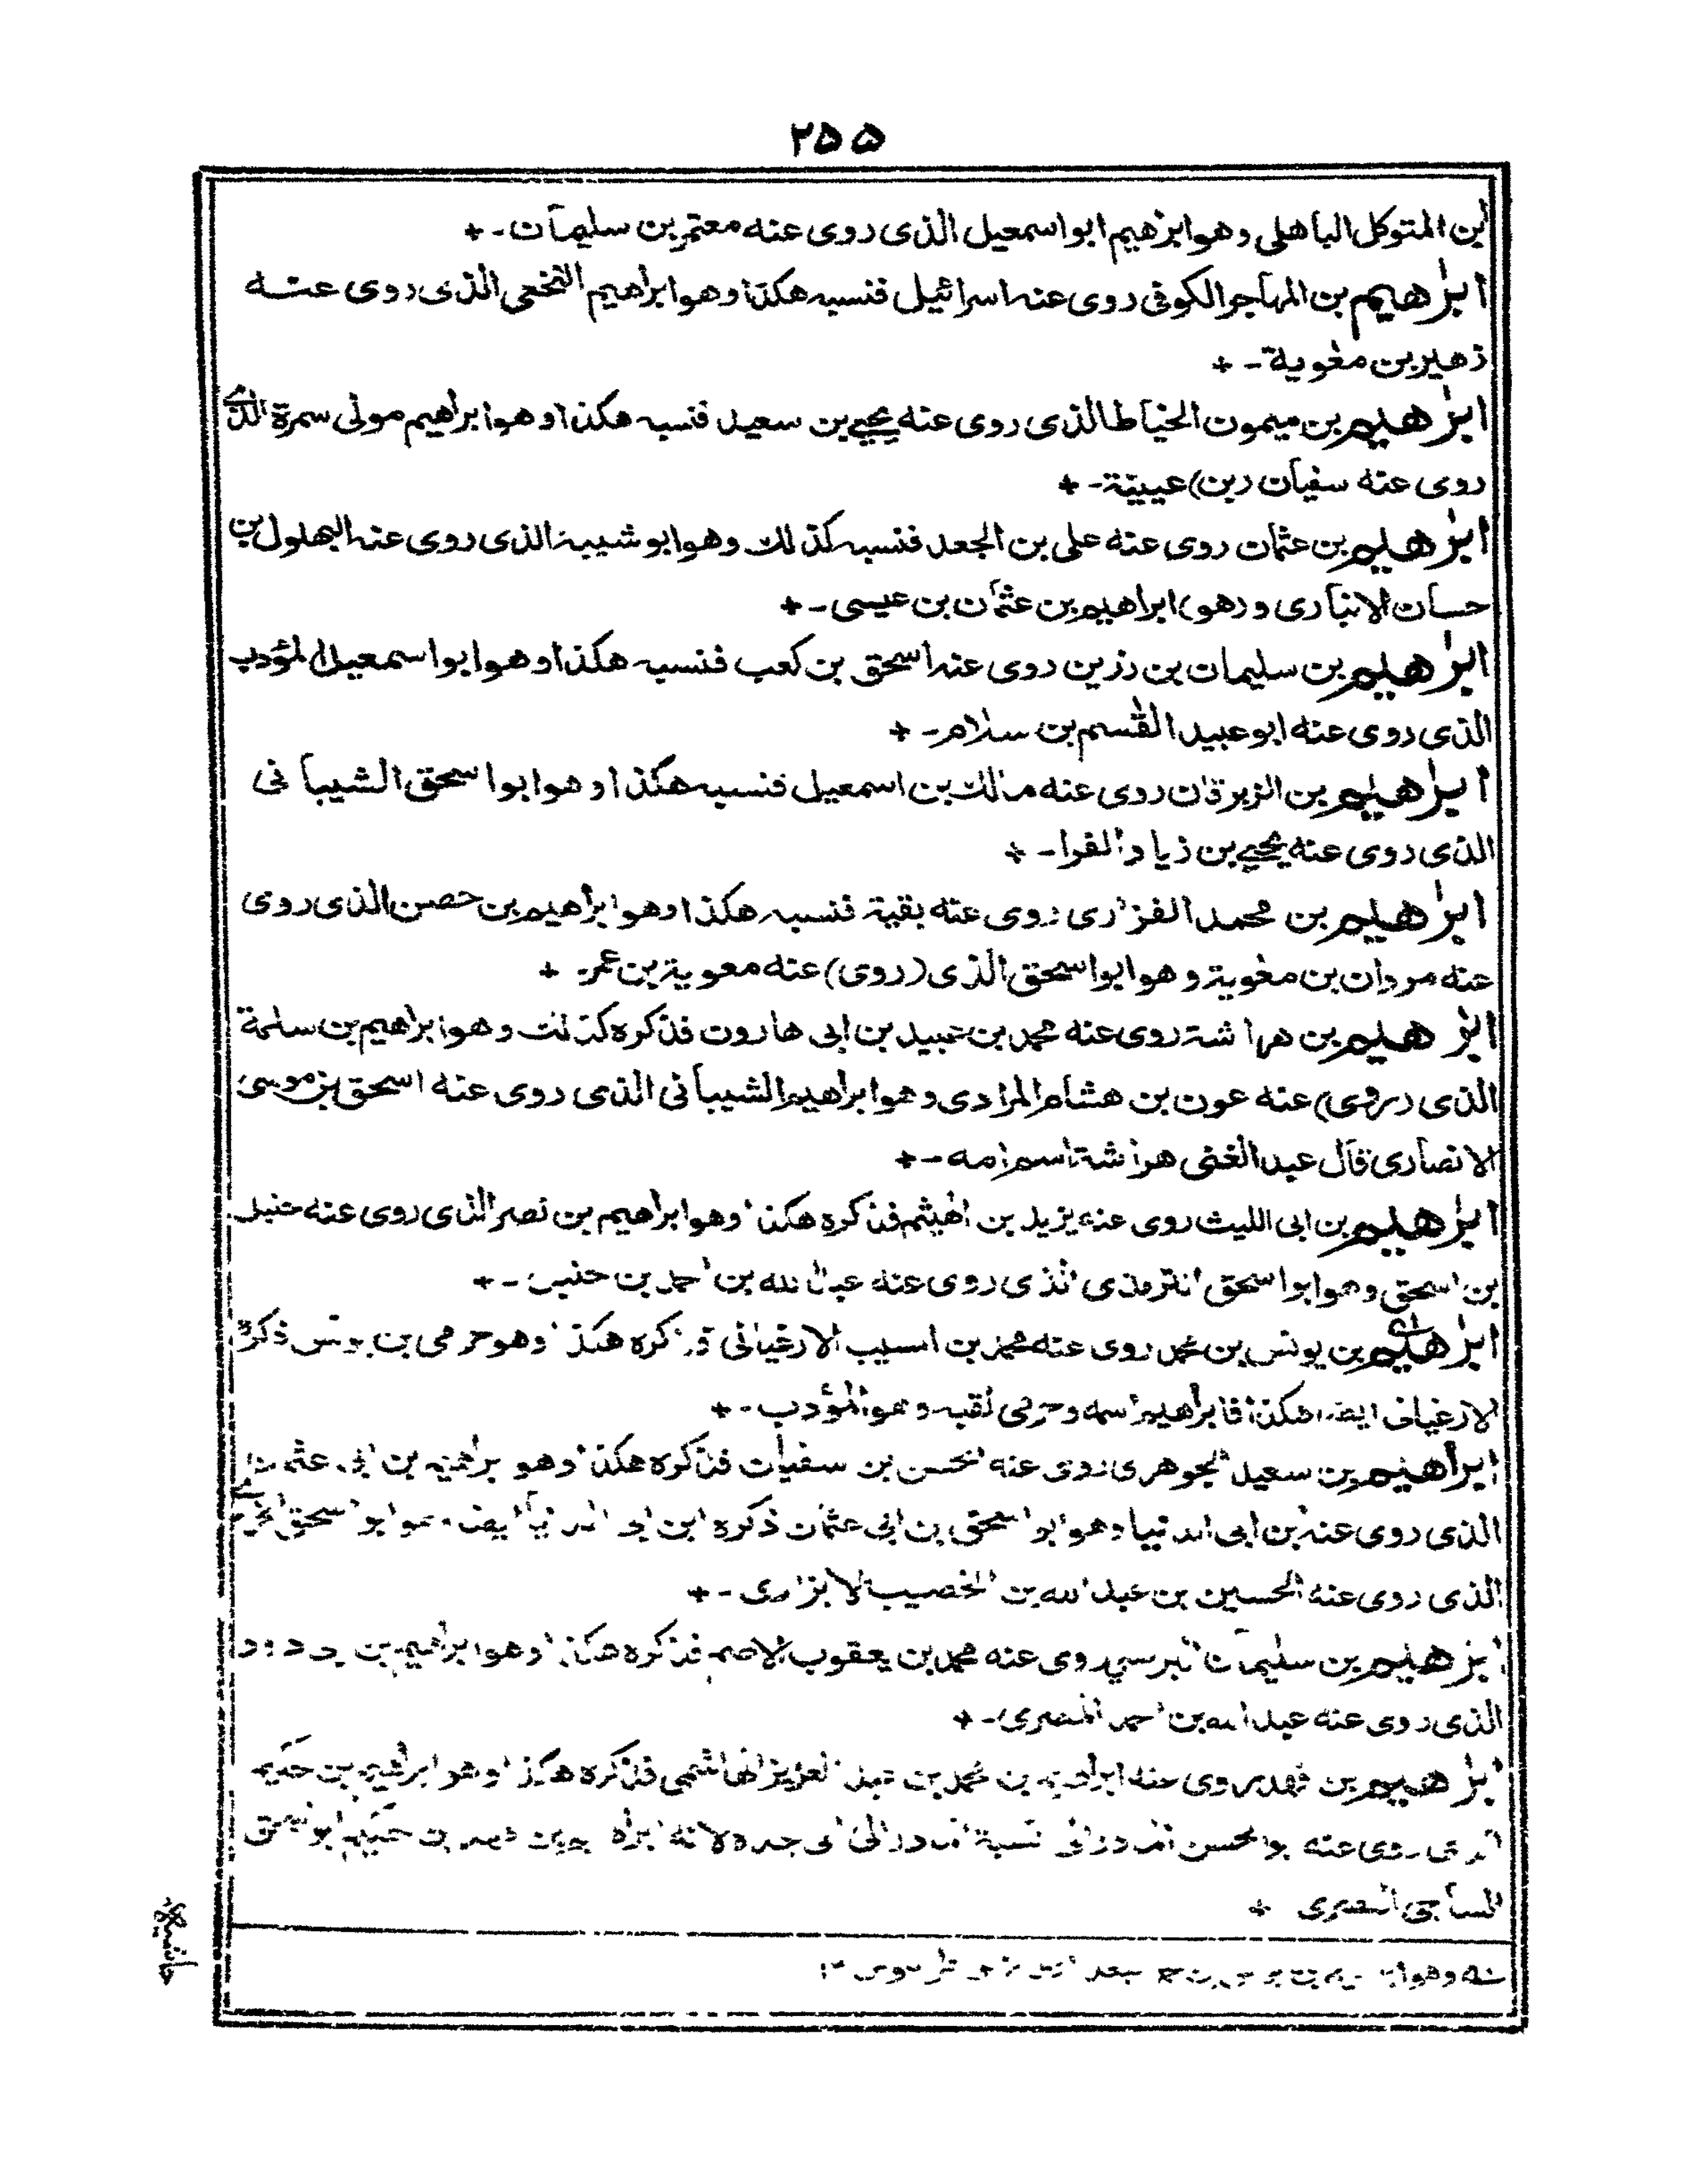 ۲۵۵
ابن المتوکل الباهلی وهو ابرٰهیم ابو اسمعیل الذی روی عنه معتمر بن سلیمان۔+
ابرٰهیم بن المهاجر الکوفی روی عنه اسرائیل فنسبه هکذا وهو ابراهیم النخعی الذی روی عنه
زهیر بن معٰویة۔+
ابرٰهیم بن میمون الخیاط الذی روی عنه یحیی بن سعید فنسبه هکذا وهو ابراهیم مولی سمرة الذی
روی عنه سفیان (بن) عیینة۔+
ابرٰهیم بن عثمان روی عنه علی بن الجعد فنسبه کذلک وهو ابو شیبة الذی روی عنه البهلول بن
حسان الانباری و (هو) ابراهیم بن عثمان بن عیسی۔+
ابرٰهیم بن سلیمان بن رزین روی عنه اسحق بن کعب فنسبه هکذا وهو ابو اسمعیل المؤدب
الذی روی عنه ابو عبید القٰسم بن سلام۔+
ابرٰهیم بن الزبرقان روی عنه مالک بن اسمعیل فنسبه هکذا وهو ابو اسحق الشیبانی
الذی روی عنه یحیی بن زیاد الفرا۔+
ابرٰهیم بن محمد الفزاری روی عنه بقیة فنسبه هکذا وهو ابراهیم بن حصن الذی روی
عنه مردان بن معٰویة وهو ابو اسحق الذی (روی) عنه معویة بن عمر۔+
ابرٰهیم بن هراشة روی عنه محمد بن عبید بن ابی هارون فذکره کذلک وهو ابراهیم بن سلمة
الذی (روی) عنه عون بن هشام المرادی وهو ابراهیم الشیبانی الذی روی عنه اسحق بن موسی
الانصاری قال عبد الغنی هراشة اسم امه۔+
ابرٰهیم بن ابی اللیث روی عنه یزید بن الهیثم فذکره هکذا وهو ابراهیم بن نصر الذی روی عنه حنبل
بن اسحق وهو ابو اسحق الترمذی الذی روی عنه عبد الله بن احمد بن حنبل۔+
ابرٰهیم بن یونس بن محمد روی عنه محمد بن المسیب الارغیانی فذکره هکذا وهو حرمی بن یونس ذکره
الارغیانی ایضا هکذا فابراهیم اسمه وحرمی لقبه وهو المؤدب۔+
ابراهیم بن سعید الجوهری روی عنه الحسن بن سفیان فذکره هکذا وهو ابراهیم بن ابی عثمان
الذی روی عنه ابن ابی الدنیا وهو ابو اسحق بن ابی عثمان ذکره ابن ابی الدنیا ایضا وهو ابو اسحق
الذی روی عنه الحسین بن عبد الله بن الخصیب الابزاری۔+
ابرٰهیم بن سلیمان البرسی روی عنه محمد بن یعقوب الاصم فذکره هکذا وهو ابراهیم بن ابی داود
الذی روی عنه عبد الله بن احمد المصری۔+
ابرٰهیم بن فهد روی عنه ابراهیم بن محمد بن عبد العزیز الهاشمی فذکره هکذا وهو ابراهیم بن حکیم
الذی روی عنه ابو الحسن نسبة الی جده لانه ابراهیم بن فهد بن حکیم ابو اسحق
الساجی البصری +
حاشیه